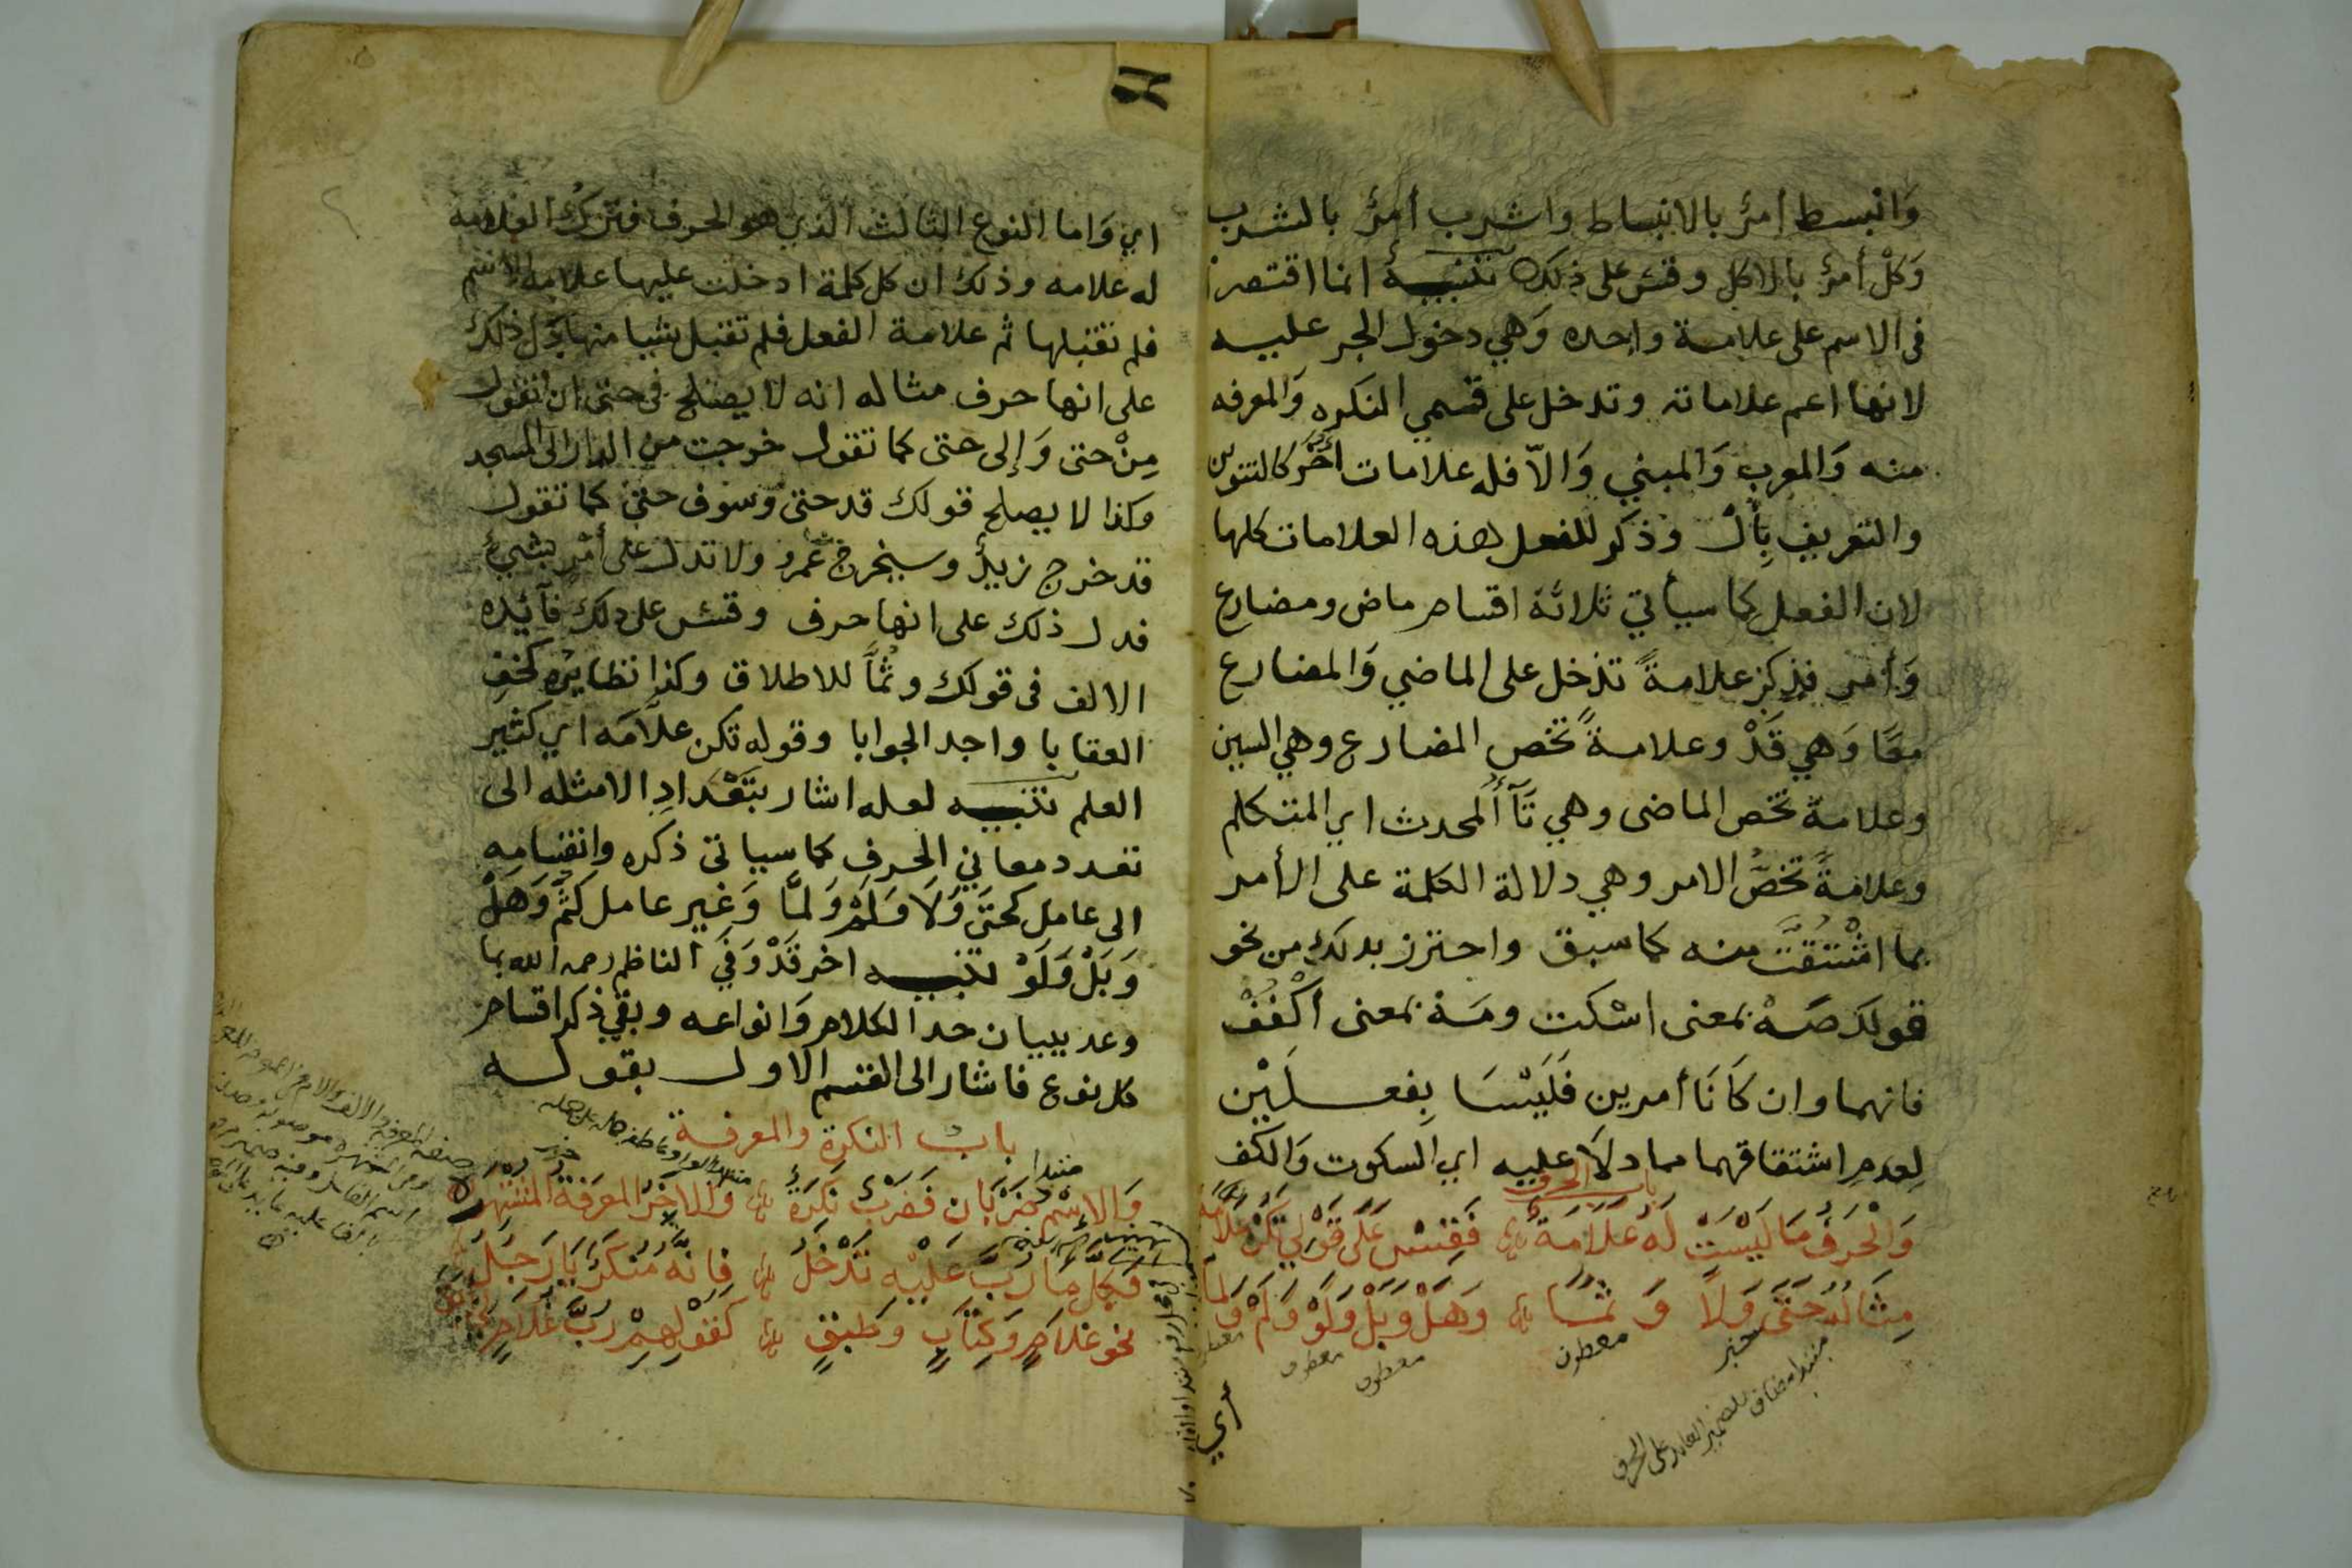 وَانْبسط أمرٌ بالانبساط واشرب أمرٌ بالشرب
وَكُلْ أمرٌ بالاكل وقس على ذلك تنبيه انما اقتصر
فى الاسم على علامة واحده وَهي دخول الجر عليه
لانها اعم علاماته وتدخل على قسمي النكره وَالمعرفه
منه وَالمعرب وَالمبني وَالاّ فله علامات اُخَر كالتنوين
والتعريف بِأَلْ وذكر للفعل هذه العلامات كلها
لان الفعل كما سيأتي ثلاثة اقسام ماض ومضارع
وَأمر فذكر علامةً تدخل على الماضي وَالمضارع
معًا وَهي قَدْ وعلامةً تخص المضارع وهي السين
وعلامة تخص الماضى وهي تَآءُ المحدث اي المتكلم
وعلامةً تخصُّ الامر وهي دلالة الكلمة على الأمر
بما اشْتُقَّت منه كما سبق واحترز بذلك من نحو
قولك صَهْ بمعنى اسْكت ومَهْ بمعنى اُكْفُفْ
فانهما وان كَانَا أمرين فَلَيْسَا بِفعلَيْن
لِعدمِ اشتقاقهما مما دلاَ عليه اي السكوت وَالكف
باب الحرف
وَالْحَرْفُ مَا لَيْسَتْ لَهُ عَلاَمَة فَقِسْ عَلَى قَوْلِي تَكُنْ عَلاَّمَه
مِثَالُهُ حَتَّى وَلاَ وَ ثُمَّا وَهَلْ وَبَلْ وَلَوْ وَلَمْ وَلَمَّا
معطوف
خبر
معطوف
معطوف
معطوف
مبتدا مضاف للضمير العايد على الحرف
اي
اي وَاما النوع الثالث الذي هو الحرف فترك العلامة
له علامه وذلك ان كل كلمة ادخلت عليها علامة الاسم
فلم تقبلها ثم علامة الفعل فلم تقبل شيا منها دل ذلك
على انها حرف مثاله انه لا يصلح فى حتى ان تقول
مِنْ حتى وَإلى حتى كما تقول خرجت من الدار الى المسجد
وكذا لا يصلح قولك قد حتى وسوف حتى كما تقول
قد خرج زيدٌ وسيخرج عَمرو ولا تدل على أمْرٍ بشيءٍ
فدل ذلك على انها حرف وقس على ذلك فآئده
الالف فى قولك وثُمَّا للاطلاق وكذا نظايره كخفِ
العقابا واجد الجوابا وقوله تكن علاَّمَه اي كثير
العلم تنبيه لعله اشار بتَعْدَادِ الامثله الى
تعدد معاني الحرفِ كما سياتى ذكره وانقسامِه
الى عامل كحتَى وَلاَ وَلَمْ وَلَمَّا وَغير عامل كثُمَّ وَهَلْ
وَبَلْ وَلَوْ تنبيه اخر قَدْ وَفَى الناظم رحمه الله بما
وعد ببيان حد الكلام وَانواعه وبقي ذكر اقسام
كل نوع فاشار الى القسم الاول بقوله
باب النكرة والمعرفة
وَالاسْمُ ضَرْبَان فَضَرْبٌ نَكِرَهْ وَالاخَرُ المَعْرِفَةُ المشْتَهِرَهْ
فَكلُّ مَا رُبَّ عَلَيْهِ تَدْخُلُ فَانَّهُ مُنَكَّرٌ يَا رَجُلُ
نحو غلاَمٍ وَكِتَابٍ وَطَبَقٍ كَقَوْلِهِمْ رُبَّ غُلاَمٍ لِي أَبَقْ
مبتدا
خبر